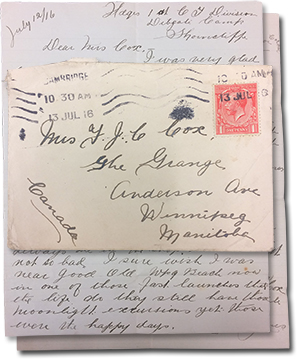 July 12/16
Hdqrs 1st Cdn Division
Delgate Camp
Shorncliffe
Dear Mrs Cox.
I was very glad
CAMBRIDGE
10.30 AM
13 JUL 16
10 30 AM
13 JUL 16
Mrs F. J. C. Cox
The Grange
Anderson Ave
Winnipeg
Manitoba
Canada
not so bad. I sure wish I was
near Good Old Wpg Beach now
in one of those fast launches
the life do they still have those
moonlight excursions yet those
were the happy days.